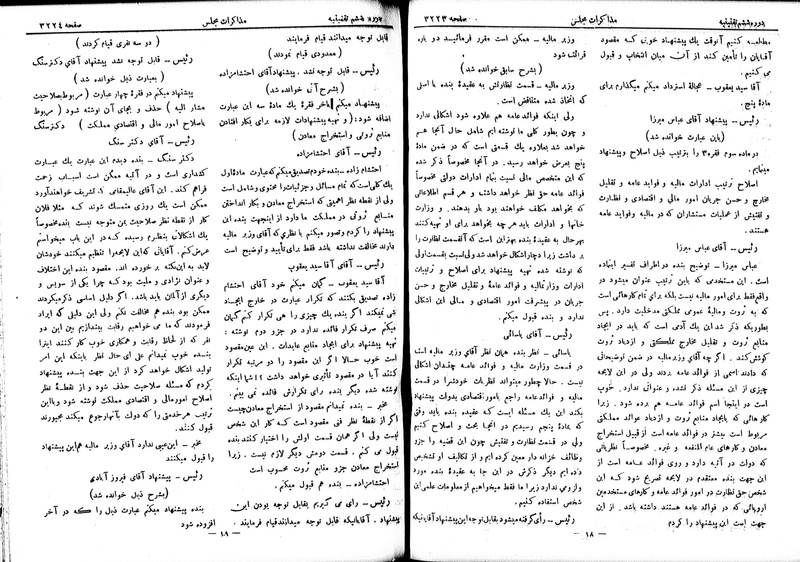 دوره ششم تقنینیه
مذاکرات مجلس
صفحه ۳۲۲۳
مطالعه کنیم آنوقت یك پیشنهاد خوبی که مقصود
آقایان را تأمین کند از آن میان انتخاب و قبول
می کنیم .
آقا سید یعقوب ـ عجالة استرداد میکنم میگذارم برای
مادهٔ پنج .
رئیس ـ پیشنهاد آقای عباس میرزا
(باین عبارت خوانده شد)
در ماده سوم فقره ۳ را بترتیب ذیل اصلاح و پیشنهاد
مینمایم .
اصلاح ترتیب ادارات مالیه و فواید عامه و تقلیل
مخارج و حسن جریان امور مالی و اقتصادی و نظارت
و تفتیش از عملیات مستشاران که در مالیه وفواید عامه
هستند .
رئیس ـ آقای عباس میرزا
عباس میرزا ـ توضیح بنده در اطراف تفسیر اینماده
است . این مستخدمی که باین ترتیب عنوان میشود در
واقع فقط برای امور مالیه نیست بلکه برای تمام کارهائی است
که به ثروت ومالیهٔ عمومی مملکتی مدخلیت دارد . پس
بطوریکه ذکر شد این یك آدمی است که باید در ایجاد
منابع ثروت و تقلیل مخارج مملکتی و ازدیاد ثروت
کوشش کنند . اگر چه آقای وزیر مالیه در ضمن توضیحاتی
که دادند اسمی از فوائد عامه بردند ولی در این لایحه
چیزی از این مسئله ذکر نشده و عنوانی ندارد . خوب
است در اینجا اسم فوائد عامه هم برده شود . زیرا
کارهائی که بایجاد منابع ثروت و ازدیاد عوائد مملکتی
مربوط است بیشتر در فوائد عامه است از قبیل استخراج
معادن و کارهای عام المنفعه و غیره . مخصوصاً نظریاتی
که دولت در آتیه دارد و روی فوائد عامه است از
این جهت بنده معتقدم در لایحه تصریح شود که این
شخص حق نظارت در امور فوائد عامه و کارهای مستخدمین
اروپائی که در فوائد عامه هستند داشته باشد . از این
جهت است این پیشنهاد را کردم
وزیر مالیه ـ ممکن است مقرر فرمائید دو باره
قرائت شود
(بشرح سابق خوانده شد)
وزیر مالیه ـ قسمت نظارتش به عقیدهٔ بنده با اسمی
که اتخاذ شده متناقض است .
ولی اینکه فوائد عامه هم علاوه شود اشکالی ندارد
و چون بطور کلی ما نوشته ایم شامل حال آنجا هم
خواهد شد بعلاوه یك قسمتی است که در ضمن مادهٔ
پنج بعرض خواهد رسید . در آنجا مخصوصاً ذکر شده
که این متخصص مالی نسبت بتمام ادارات دولتی مخصوصاً
فوائد عامه حق نظر خواهد داشت و هر قسم اطلاعاتی
که بخواهد مکلف خواهند بود باو بدهند . و وزارت
خانها و ادارات باید هر چه بخواهد برای او تهیه کنند
بهر حال به عقیدهٔ بنده بهتر این است که آقا قسمت نظارت را
بر داشت زیرا دچار اشکال خواهد شد ولی نسبت بقسمت اولی
که نوشته شده تهیه پیشنهاد برای اصلاح و ترتیبات
ادارات وزارتمالیه و فوائد عامهٔ و تقلیل مخارج و حسن
جریان در پیشرفت امور اقتصادی و مالی این اشکالی
ندارد و بنده قبول میکنم .
رئیس ـ آقای یاسائی
یاسائی ـ نظر بنده همان نظر آقای وزیر مالیه است
در قسمت وزارت مالیه و فوائد عامه چندان اشکالی
نیست . حالا چطور میتواند نظریات خودشرا در قسمت
مالیه و فوائدعامه راجع بامور اقتصادی بدولت پیشنهاد
بکند این یك مسئله ایست که عقیده بنده باید وقتی
که بمادهٔ پنجم رسیدیم در آنجا بحث و اصلاح کنیم
ولی در قسمت نظارت و تفتیش چون این قضیه را جزو
وظائف خزانه دار معین کرده ایم و از تکالیف او تشخیص
داده ایم دیگر ذکرش در این جا به عقیدهٔ بنده مورد
ولزومی ندارد زیرا ما فقط میخواهیم از معلومات علمی این
شخص استفاده کنیم .
رئیس ـ رأی گرفته میشود بقابل توجه این پیشنهاد آقایانیکه
ـ ۱۸ ـ
دوره ششم تقنینیه
مذاکرات مجلس
صفحه ۳۲۲۴
قابل توجه میدانند قیام فرمایند
(معدودی قیام نمودند)
رئیس ـ قابل توجه نشد . پیشنهاد آقای احتشام‌زاده
(بشرح آتی خوانده شد)
پیشنهاد میکنم بآخر فقرهٔ یك مادهٔ سه این عبارت
اضافه شود : (و تهیه پیشنهادات لازمه برای بکار افتادن
منابع ثروتی و استخراج معادن)
رئیس ـ آقای احتشامزاده
احتشام زاده ـ بنده خودم تصدیق میکنم که عبارت مادهٔ اول
یك کلی است که تمام مسائل وجزئیات را محتوی و شامل است
ولی از نقطه نظر اهمیتی که استخراج معادن و بکار انداختن
منابع ثروتی در مملکت ما دارد از اینجهت بنده این
پیشنهاد را کردم وتصور میکنم با نظری که آقای وزیر مالیه
دارند مخالفت نداشته باشد فقط برای تأیید و توضیح است
رئیس ـ آقای آقا سید یعقوب
آقا سید یعقوب ـ گمان میکنم خود آقای احتشام
زاده تصدیق بکنند که تکرار عبارت در خارج ایجاد
شی نمیکند اگر بنده یك چیزی را هی تکرار کنم گمان
میکنم صرف تکرار فائده ندارد در جزو دوم نوشته :
تهیه پیشنهاد برای ایجاد منابع عایدات . این عین مقصود
است خوب حالا اگر این مقصود را در مرتبه تکرار
کنند آیا در مقصود تأثیری خواهد داشت ؟ اشیا اینکه
نوشته شده دیگر بنده برای تکرارش فائده نمی بینم .
مخبر ـ بنده نمیدانم مقصود از استخراج معادن چیست
اگر از نقطهٔ نظر فنی مقصود است که کار این شخص
نیست ولی اگر همان قسمت اولش را اختیار کنند بنده
قبول می کنم . قسمت دومش دیگر لازم نیست . زیرا
استخراج معادن جزو منابع ثروت محسوب است
احتشامزاده ـ بنده هم قبول میکنم .
رئیس ـ رأی می گیریم بقابل توجه بودن این
پیشنهاد . آقایانیکه قابل توجه میدانند قیام فرمایند
(دو سه نفری قیام کردند)
رئیس ـ قابل توجه نشد پیشنهاد آقای دکتر سنگ
(بعبارت ذیل خوانده شد)
پیشنهاد میکنم در فقرهٔ چهار عبارت (مربوط بصلاحیت
مشار الیه) حذف و بجای آن نوشته شود (مربوط
باصلاح امور مالی و اقتصادی مملکت) دکتر سنگ
رئیس ـ آقای دکتر سنگ
دکتر سنگ ـ بنده دیدم این عبارت یك عبارت
کشداری است و در آتیه ممکن است اسباب زحمت
فراهم کند . این آقای عالیمقامی که تشریف خواهند آورد
ممکن است یك روزی متمسك شوند که مثلا فلان
کار از نقطه نظر صلاحیت بمن متوجه نیست بنده مخصوصاً
یك اشکالاتی بنظرم رسیده که در این باب میخواستم
عرض کنم . آقایانی که این لایحه را تنظیم میکنند خودشان
لابد به این نکته بر خورده اند . مقصود بنده این اختلاف
و عنوان نژادی و ملیت بود که چرا یکی از سویس و
دیگری از آلمان باید باشد . اگر دلیل اساسی ذکر میکردند
ممکن بود بنده هم مخالفت نکنم ولی این دلیلی که ایراد
فرمودند که ما می خواهیم رقابت بیندازیم بین این دو
نفر که از لحاظ رقابت و همکاری خوب کار کنند اینرا
بنده خوب نمیدانم علی ای حال نظر باینکه این امر
تولید اشکال خواهد کرد از این جهت بنده پیشنهاد
کردم که مسئله صلاحیت حذف شود و از نقطهٔ نظر
اصلاح امور مالی و اقتصادی مملکت نوشته شود وبااین
ترتیب هر خدمتی را که دولت بآنها رجوع میکند مجبورند
قبول کنند .
مخبر ـ این عیبی ندارد آقای وزیر مالیه هم این پیشنهاد
را قبول میکنند
رئیس ـ پیشنهاد آقای فیروز آبادی
(بشرح ذیل خوانده شد)
بنده پیشنهاد میکنم عبارت ذیل را که در آخر
افزوده شود
ـ ۱۹ ـ